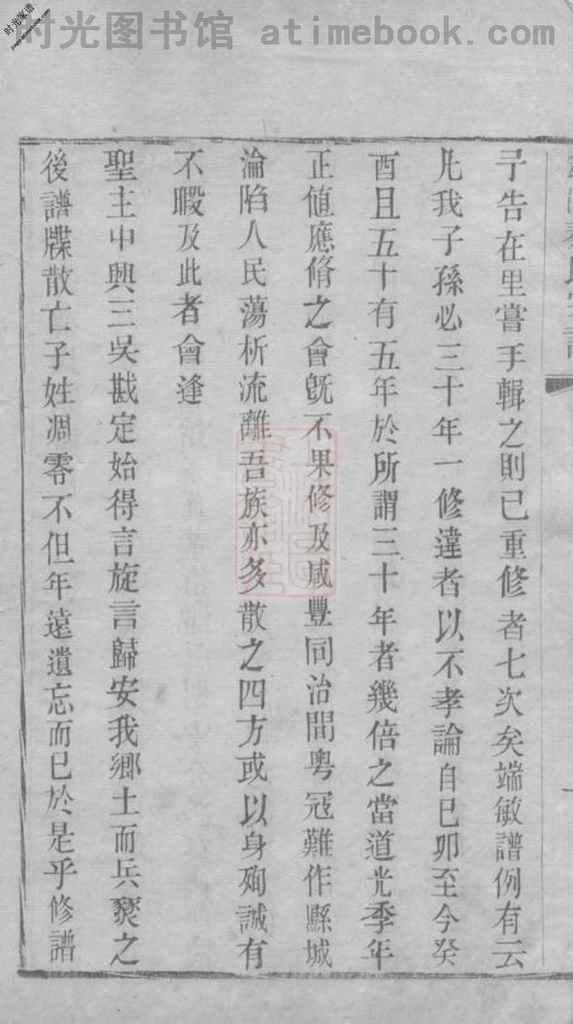 时光图书馆 atimebook.com
时光家谱
予告在里嘗手輯之則已重修者七次矣端敏譜例有云
凡我子孫必三十年一修違者以不孝論自巳卯至今癸
酉且五十有五年於所謂三十年者幾倍之當道光季年
正値應脩之會旣不果修及咸豐同治間粤冦難作縣城
淪陷人民蕩析流離吾族亦多散之四方或以身殉誠有
不暇及此者會逢
聖主中興三吳戡定始得言旋言歸安我鄉土而兵燹之
後譜牒散亡子姓凋零不但年遠遺忘而已於是乎修譜